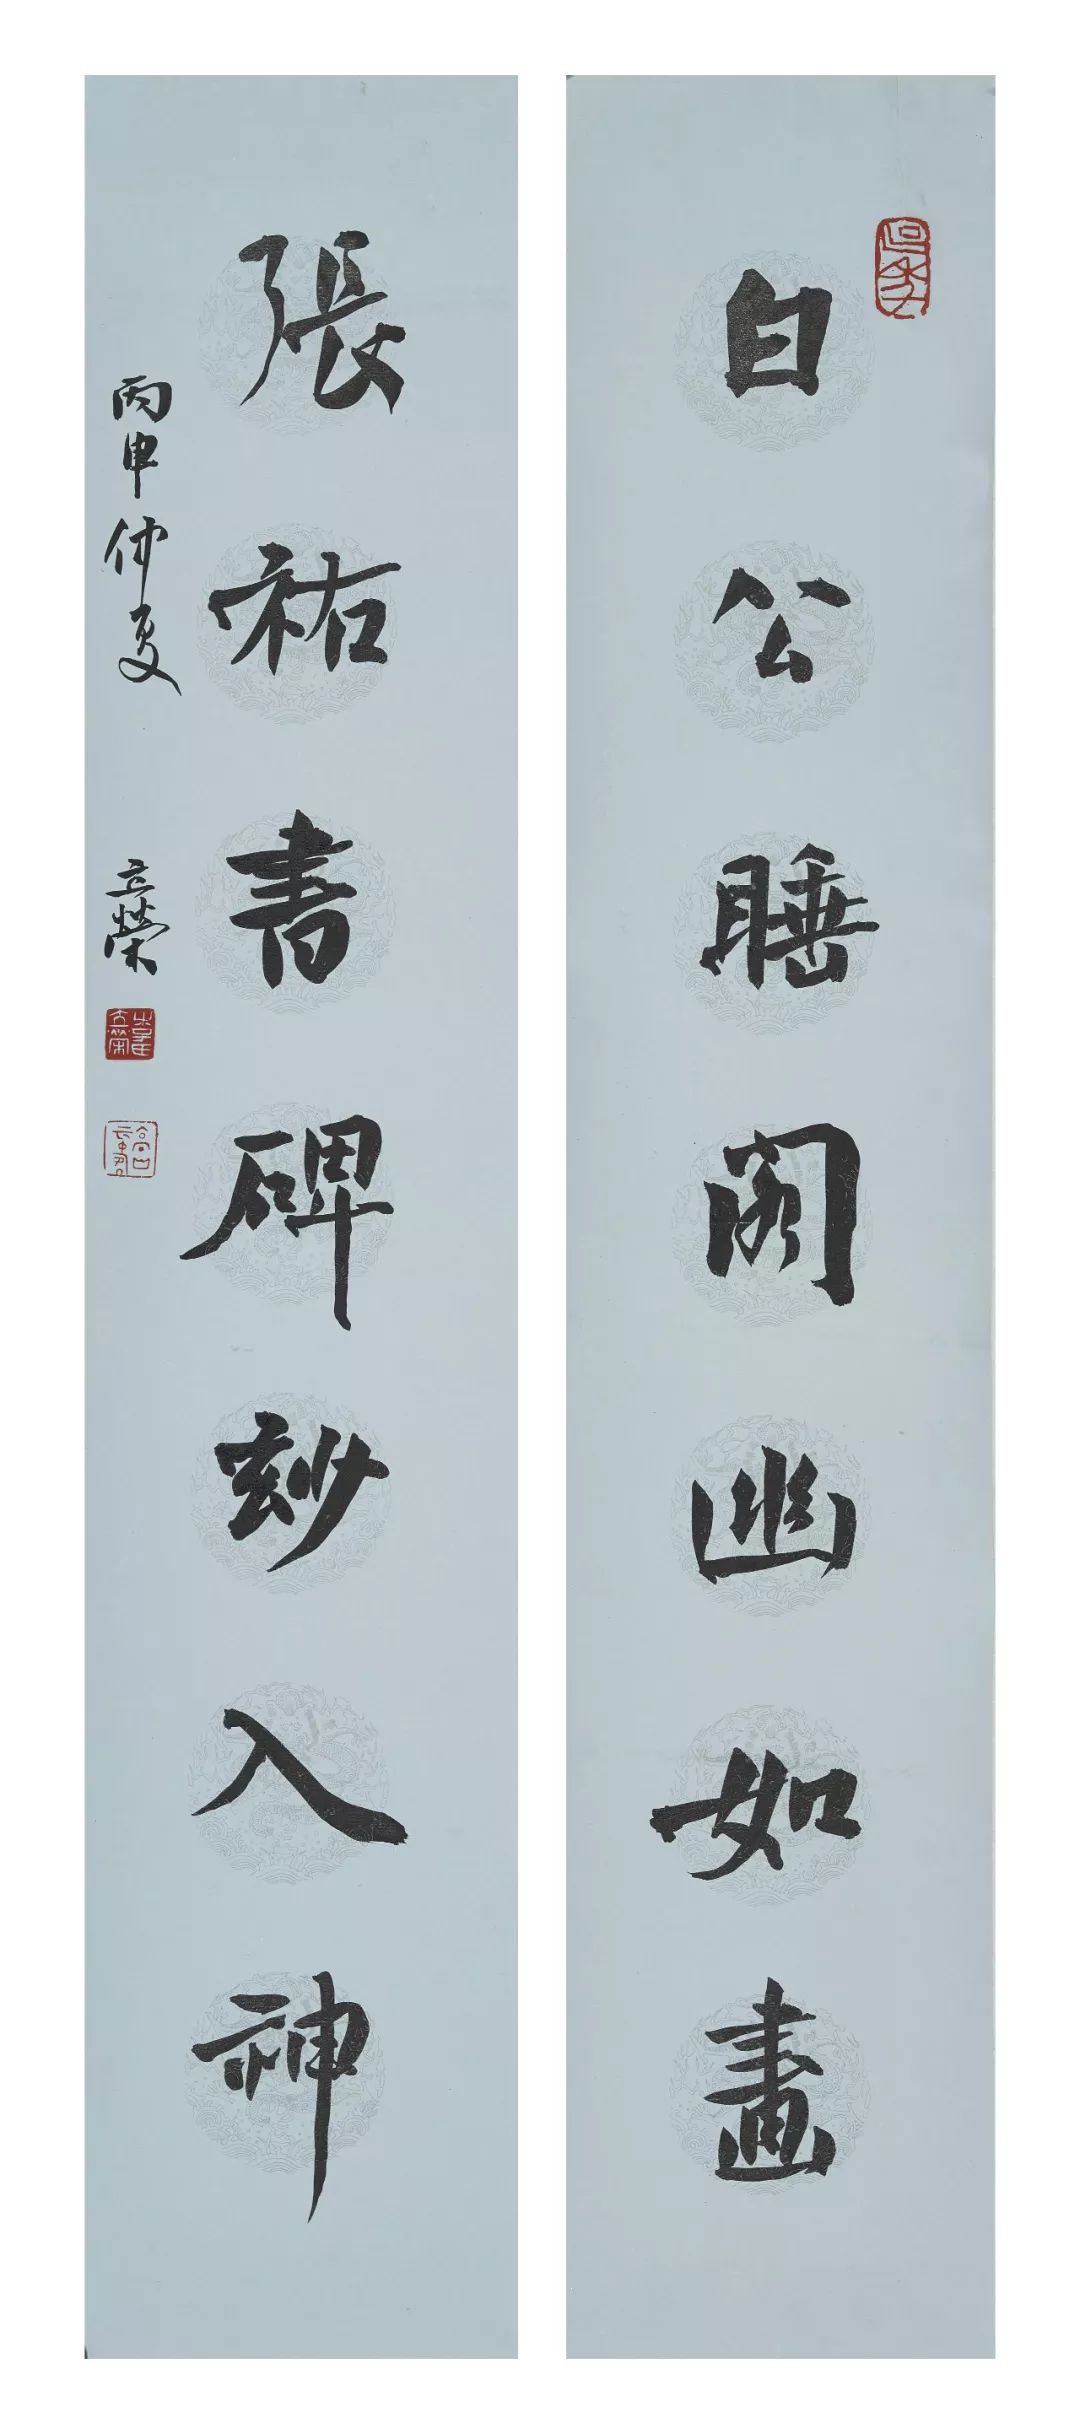 白公睡閣幽如畫
張祐書碑妙入神
丙申仲夏 立榮